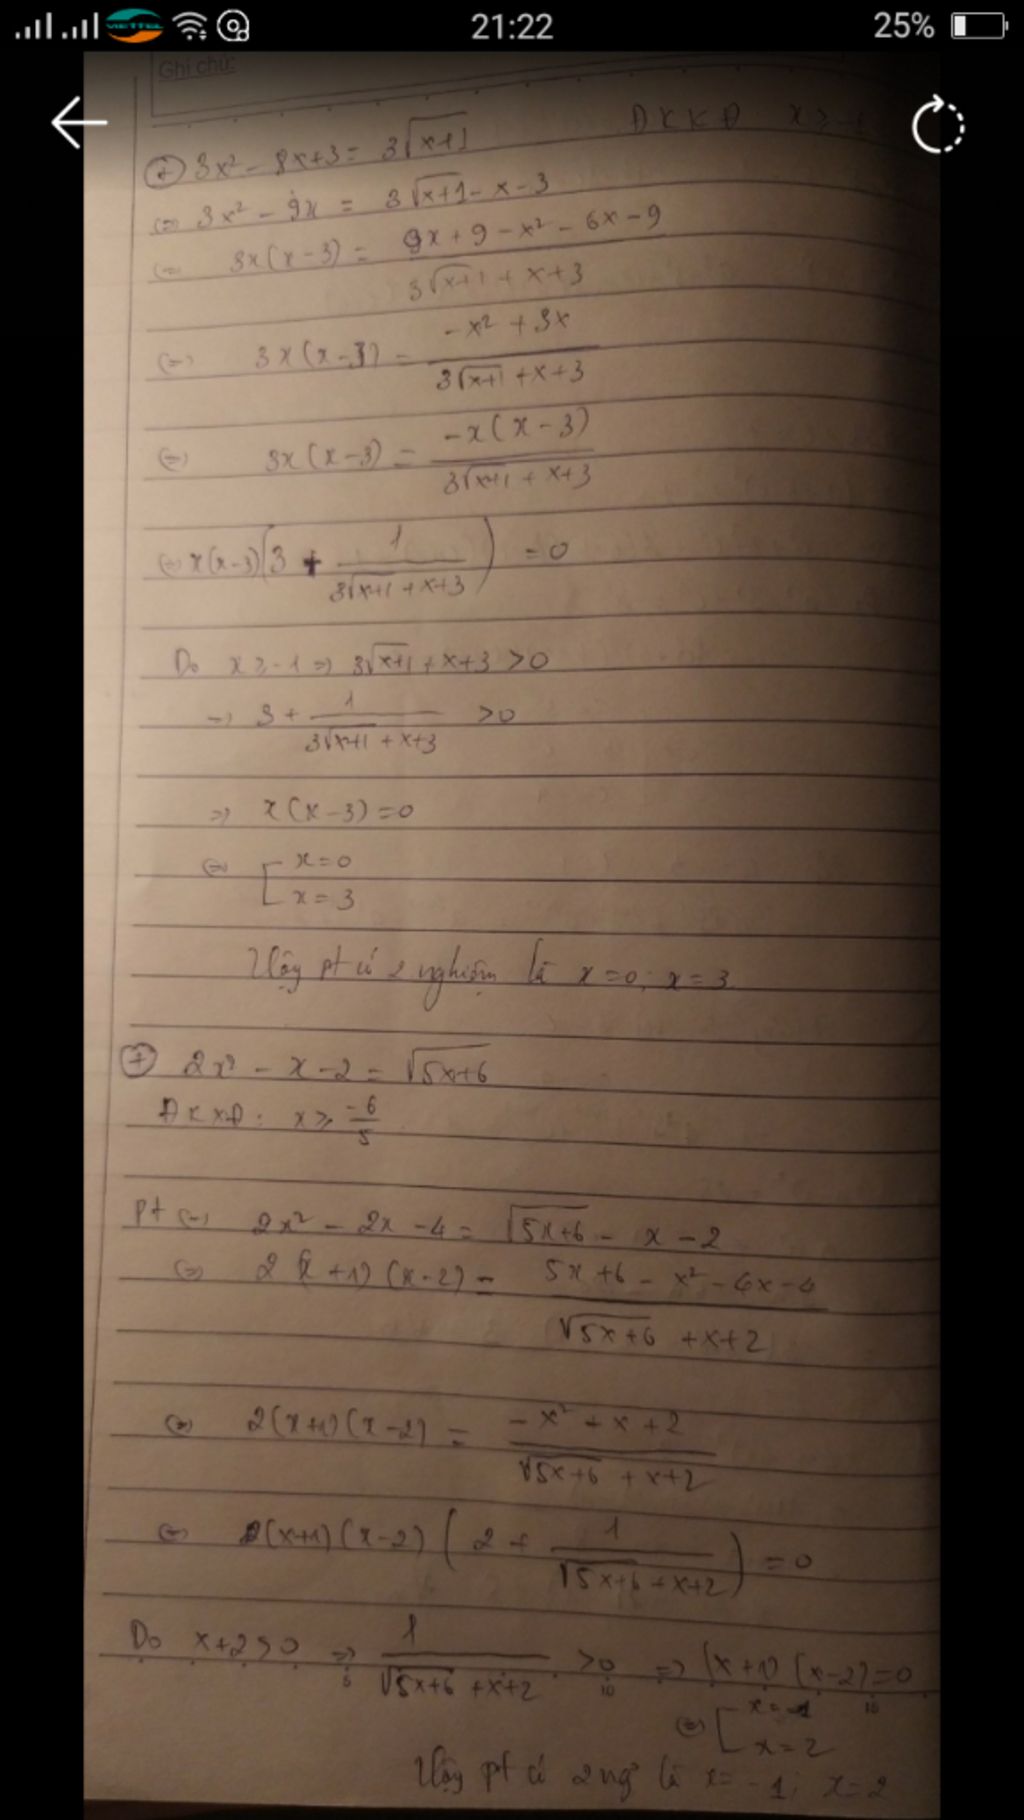 VIETTEL
21:22
25%
Ghi chú:
+ 3x² - 8x+3 = 3√(x+1) ĐKXĐ x ≥ -1
(=) 3x² - 9x = 3√(x+1) - x - 3
(=) 3x(x-3) = (9x + 9 - x² - 6x - 9)/(3√(x+1) + x+3)
(=) 3x(x-3) = (-x² + 3x)/(3√(x+1) + x+3)
(=) 3x(x-3) = (-x(x-3))/(3√(x+1) + x+3)
(=) x(x-3)(3 + 1/(3√(x+1) + x+3)) = 0
Do x ≥ -1 => 3√(x+1) + x+3 > 0
=> 3 + 1/(3√(x+1) + x+3) > 0
=> x(x-3) = 0
(=) [ x = 0
x = 3
Vậy pt có 2 nghiệm là x = 0; x = 3
+ 2x² - x - 2 = √(5x+6)
ĐKXĐ: x ≥ -6/5
Pt (=) 2x² - 2x - 4 = √(5x+6) - x - 2
(=) 2(x+1)(x-2) = (5x+6 - x² - 4x - 4)/(√(5x+6) + x+2)
(=) 2(x+1)(x-2) = (-x² + x + 2)/(√(5x+6) + x+2)
(=) 2(x+1)(x-2)(2 + 1/(√(5x+6) + x+2)) = 0
Do x+2 > 0 => 1/(√(5x+6) + x+2) > 0 => (x+1)(x-2) = 0
5 10 15
(=) [ x = -1
x = 2
Vậy pt có 2 ng⁰ là x = -1; x = 2